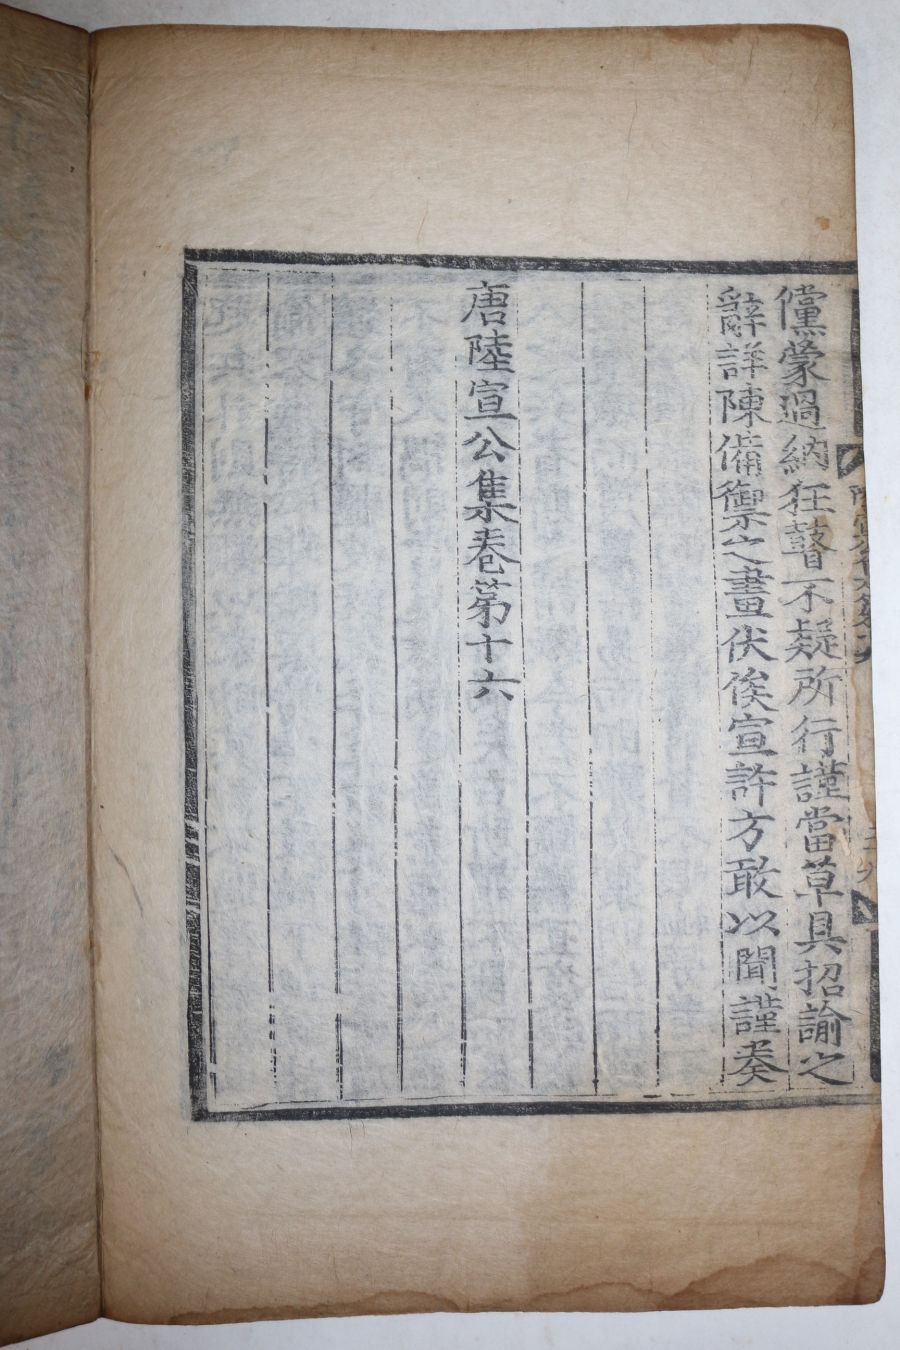 儻蒙過納狂瞽不疑所行謹當草具招諭之
辭詳陳備禦之畫伏俟宣許方敢以聞謹奏
唐陸宣公集卷第十六